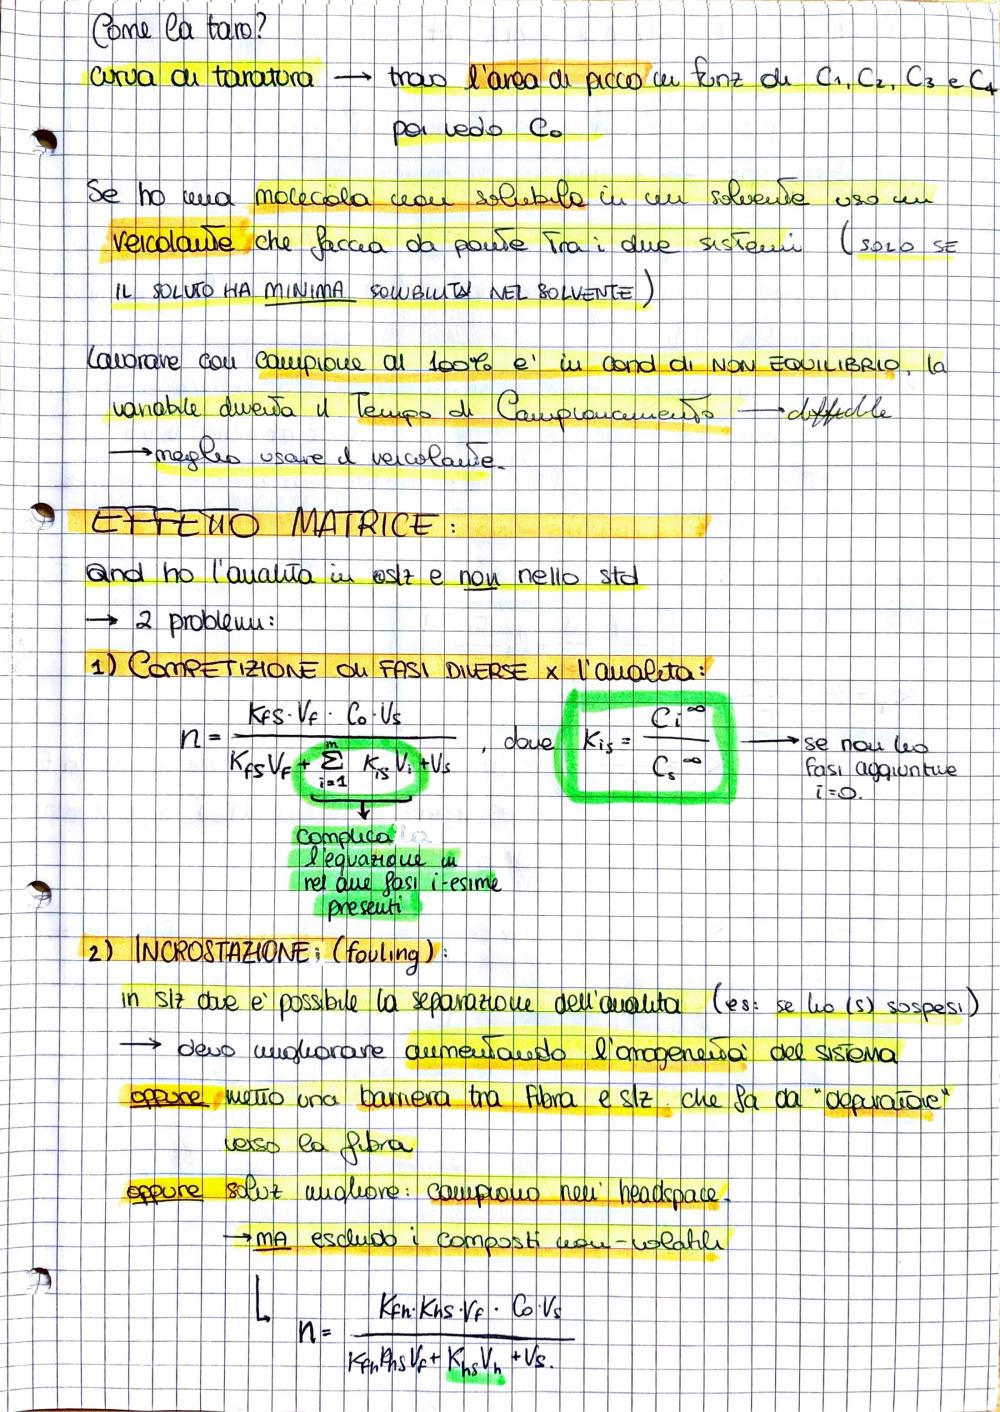 Come la taro?
curva di taratura → trovo l'area di picco in funz di C1, C2, C3 e C4
poi vedo C0
Se ho una molecola non solubile in un solvente uso un
veicolante che faccia da ponte tra i due sistemi (SOLO SE
IL SOLUTO HA MINIMA SOLUBILITÀ NEL SOLVENTE)
Lavorare con campione al 100% e' in cond di NON EQUILIBRIO, la
variabile diventa il Tempo di Campionamento → difficile
→ meglio usare il veicolante.
EFFETTO MATRICE:
Qnd ho l'analita in slz e non nello std
→ 2 problemi:
1) COMPETIZIONE di FASI DIVERSE x l'analita:
n = Kfs·Vf · C0·Vs / KfsVf + Σ i=1 m Kis Vi + Vs , dove Kis = Ci∞ / Cs∞ → se non ho
fasi aggiuntive
i=0.
complica
l'equazione in
rel alle fasi i-esime
presenti
2) INCROSTAZIONE: (fouling):
in slz dove e' possibile la separazione dell'analita (es: se ho (s) sospesi)
→ devo migliorare aumentando l'omogeneità del sistema
oppure metto una barriera tra fibra e slz che fa da "depuratore"
verso la fibra
oppure soluz migliore: campiono nell' headspace.
→ MA escludo i composti non-volatili
n = Kfh·Khs·Vf · C0·Vs / KfhKhsVf + KhsVh + Vs.